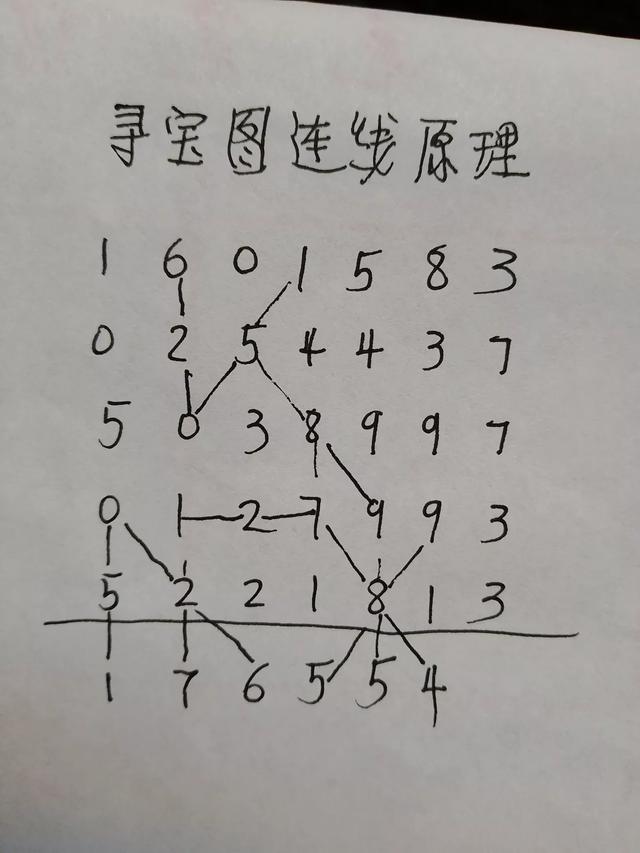 寻宝图连线原理
1 6 0 1 5 8 3
0 2 5 4 4 3 7
5 0 3 8 9 9 7
0 1 2 7 9 9 3
5 2 2 1 8 1 3
1 7 6 5 5 4